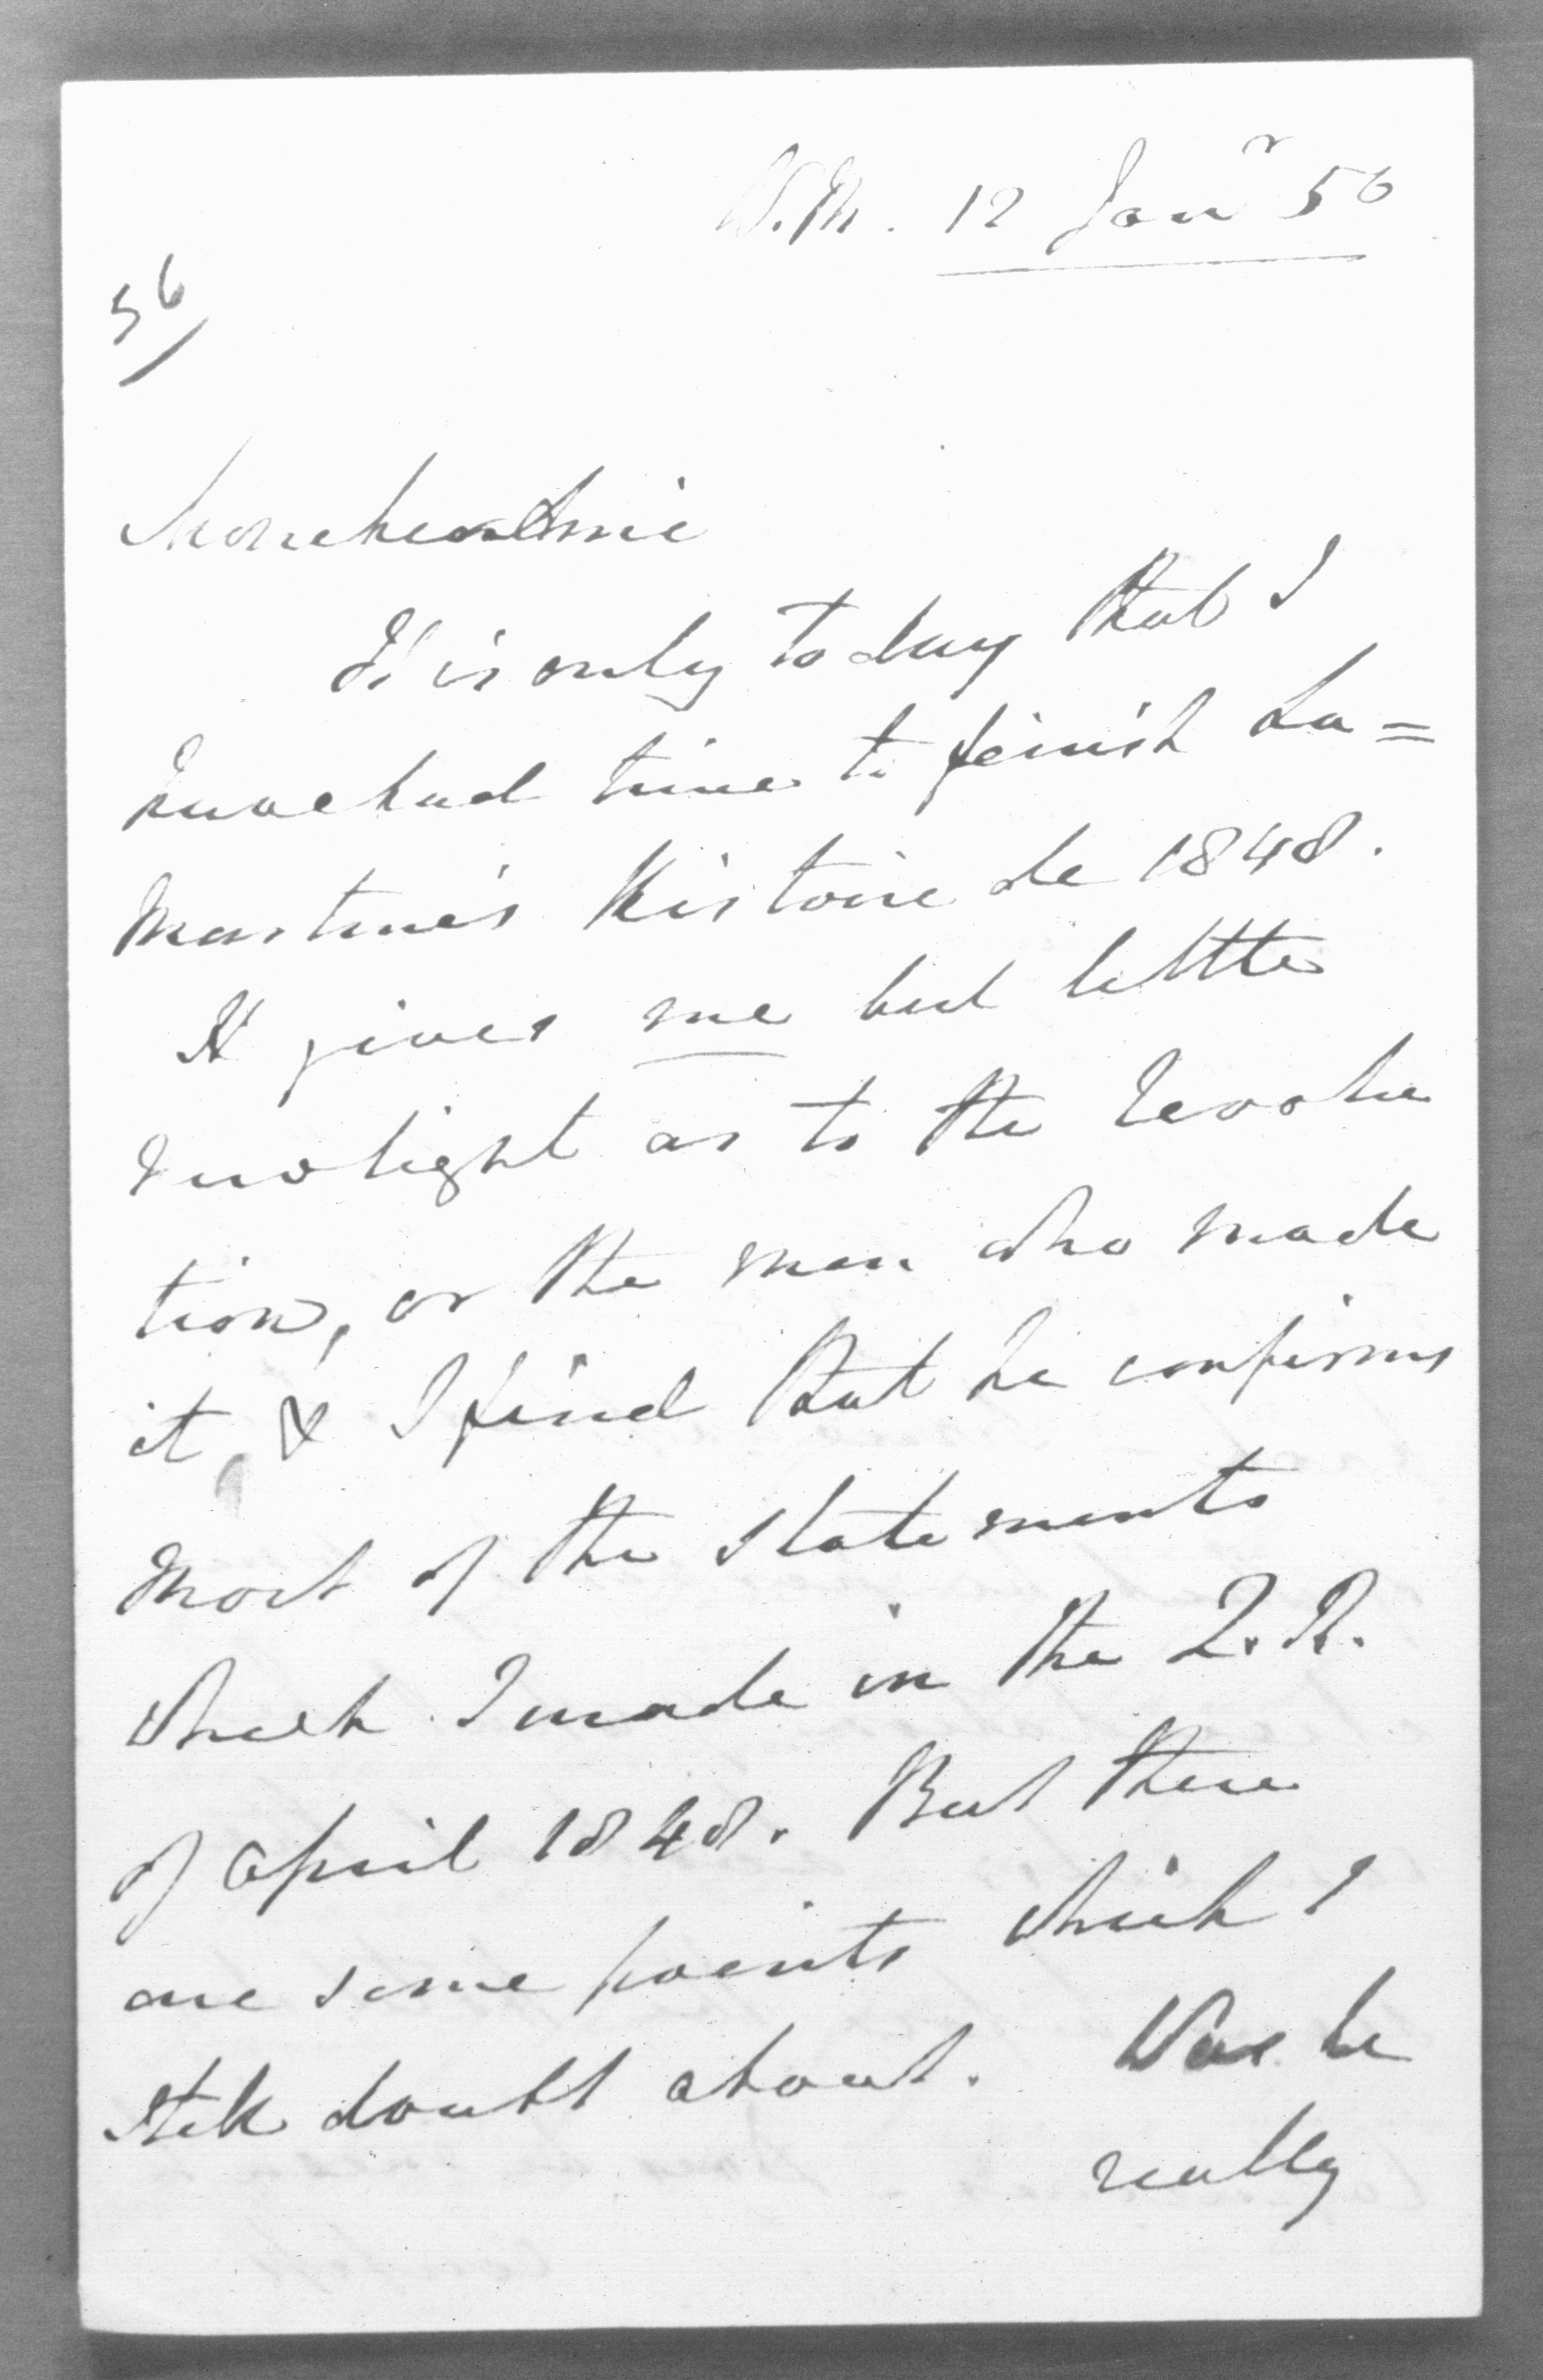 W.M. 12 Janr 50
56
Mon cher Ami
It is only to day that I
have had time to finish La=
martine's Histoire de 1848.
It gives me but little
new light as to the Revolu
tion, or the men who made
it, & I find that he confirms
most of the statements
which I made in the Q.R.
of April 1848. But there
are some points which I
still doubt about. Was he
really